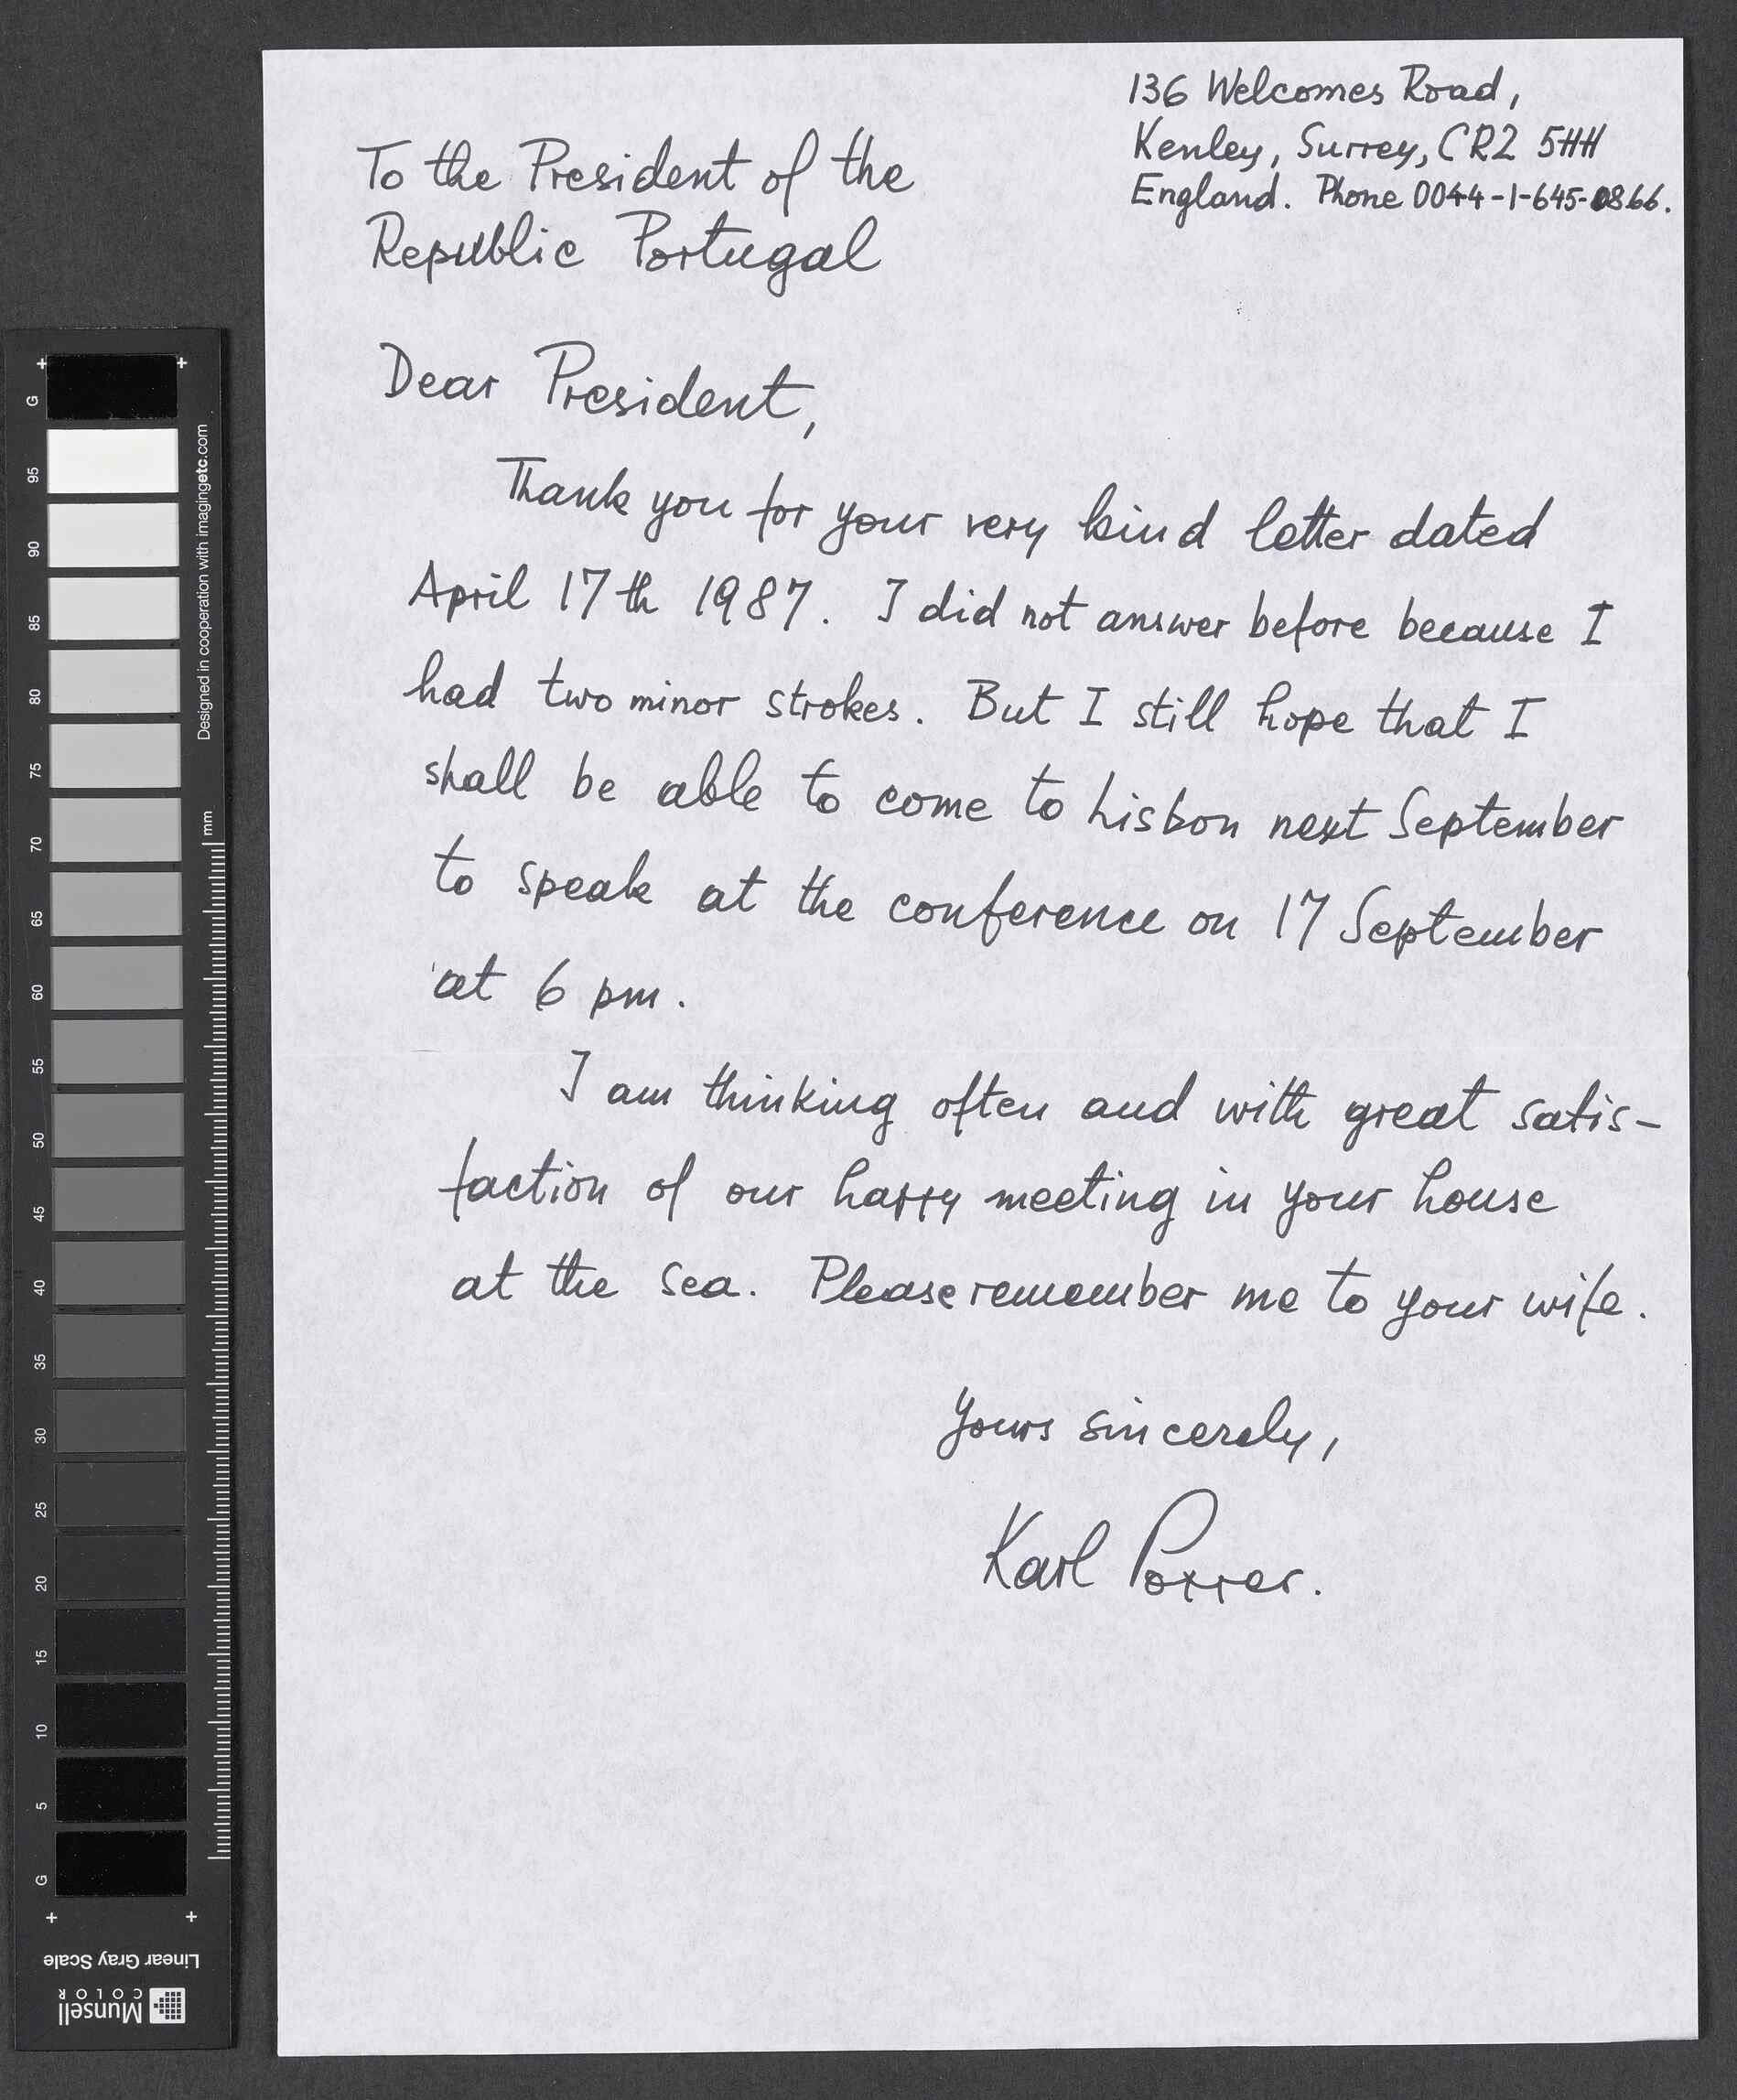 136 Welcomes Road,
Kenley, Surrey, CR2 5HH
England. Phone 0044-1-645-0866.
To the President of the
Republic Portugal
Dear President,
Thank you for your very kind letter dated
April 17th 1987. I did not answer before because I
had two minor strokes. But I still hope that I
shall be able to come to Lisbon next September
to speak at the conference on 17 September
at 6 pm.
I am thinking often and with great satis-
faction of our happy meeting in your house
at the sea. Please remember me to your wife.
Yours sincerely,
Karl Popper.
G
95
90
85
80
75
70
65
60
55
50
45
40
35
30
25
20
15
10
5
G
Designed in cooperation with imagingetc.com
mm
Linear Gray Scale
Munsell
COLOR